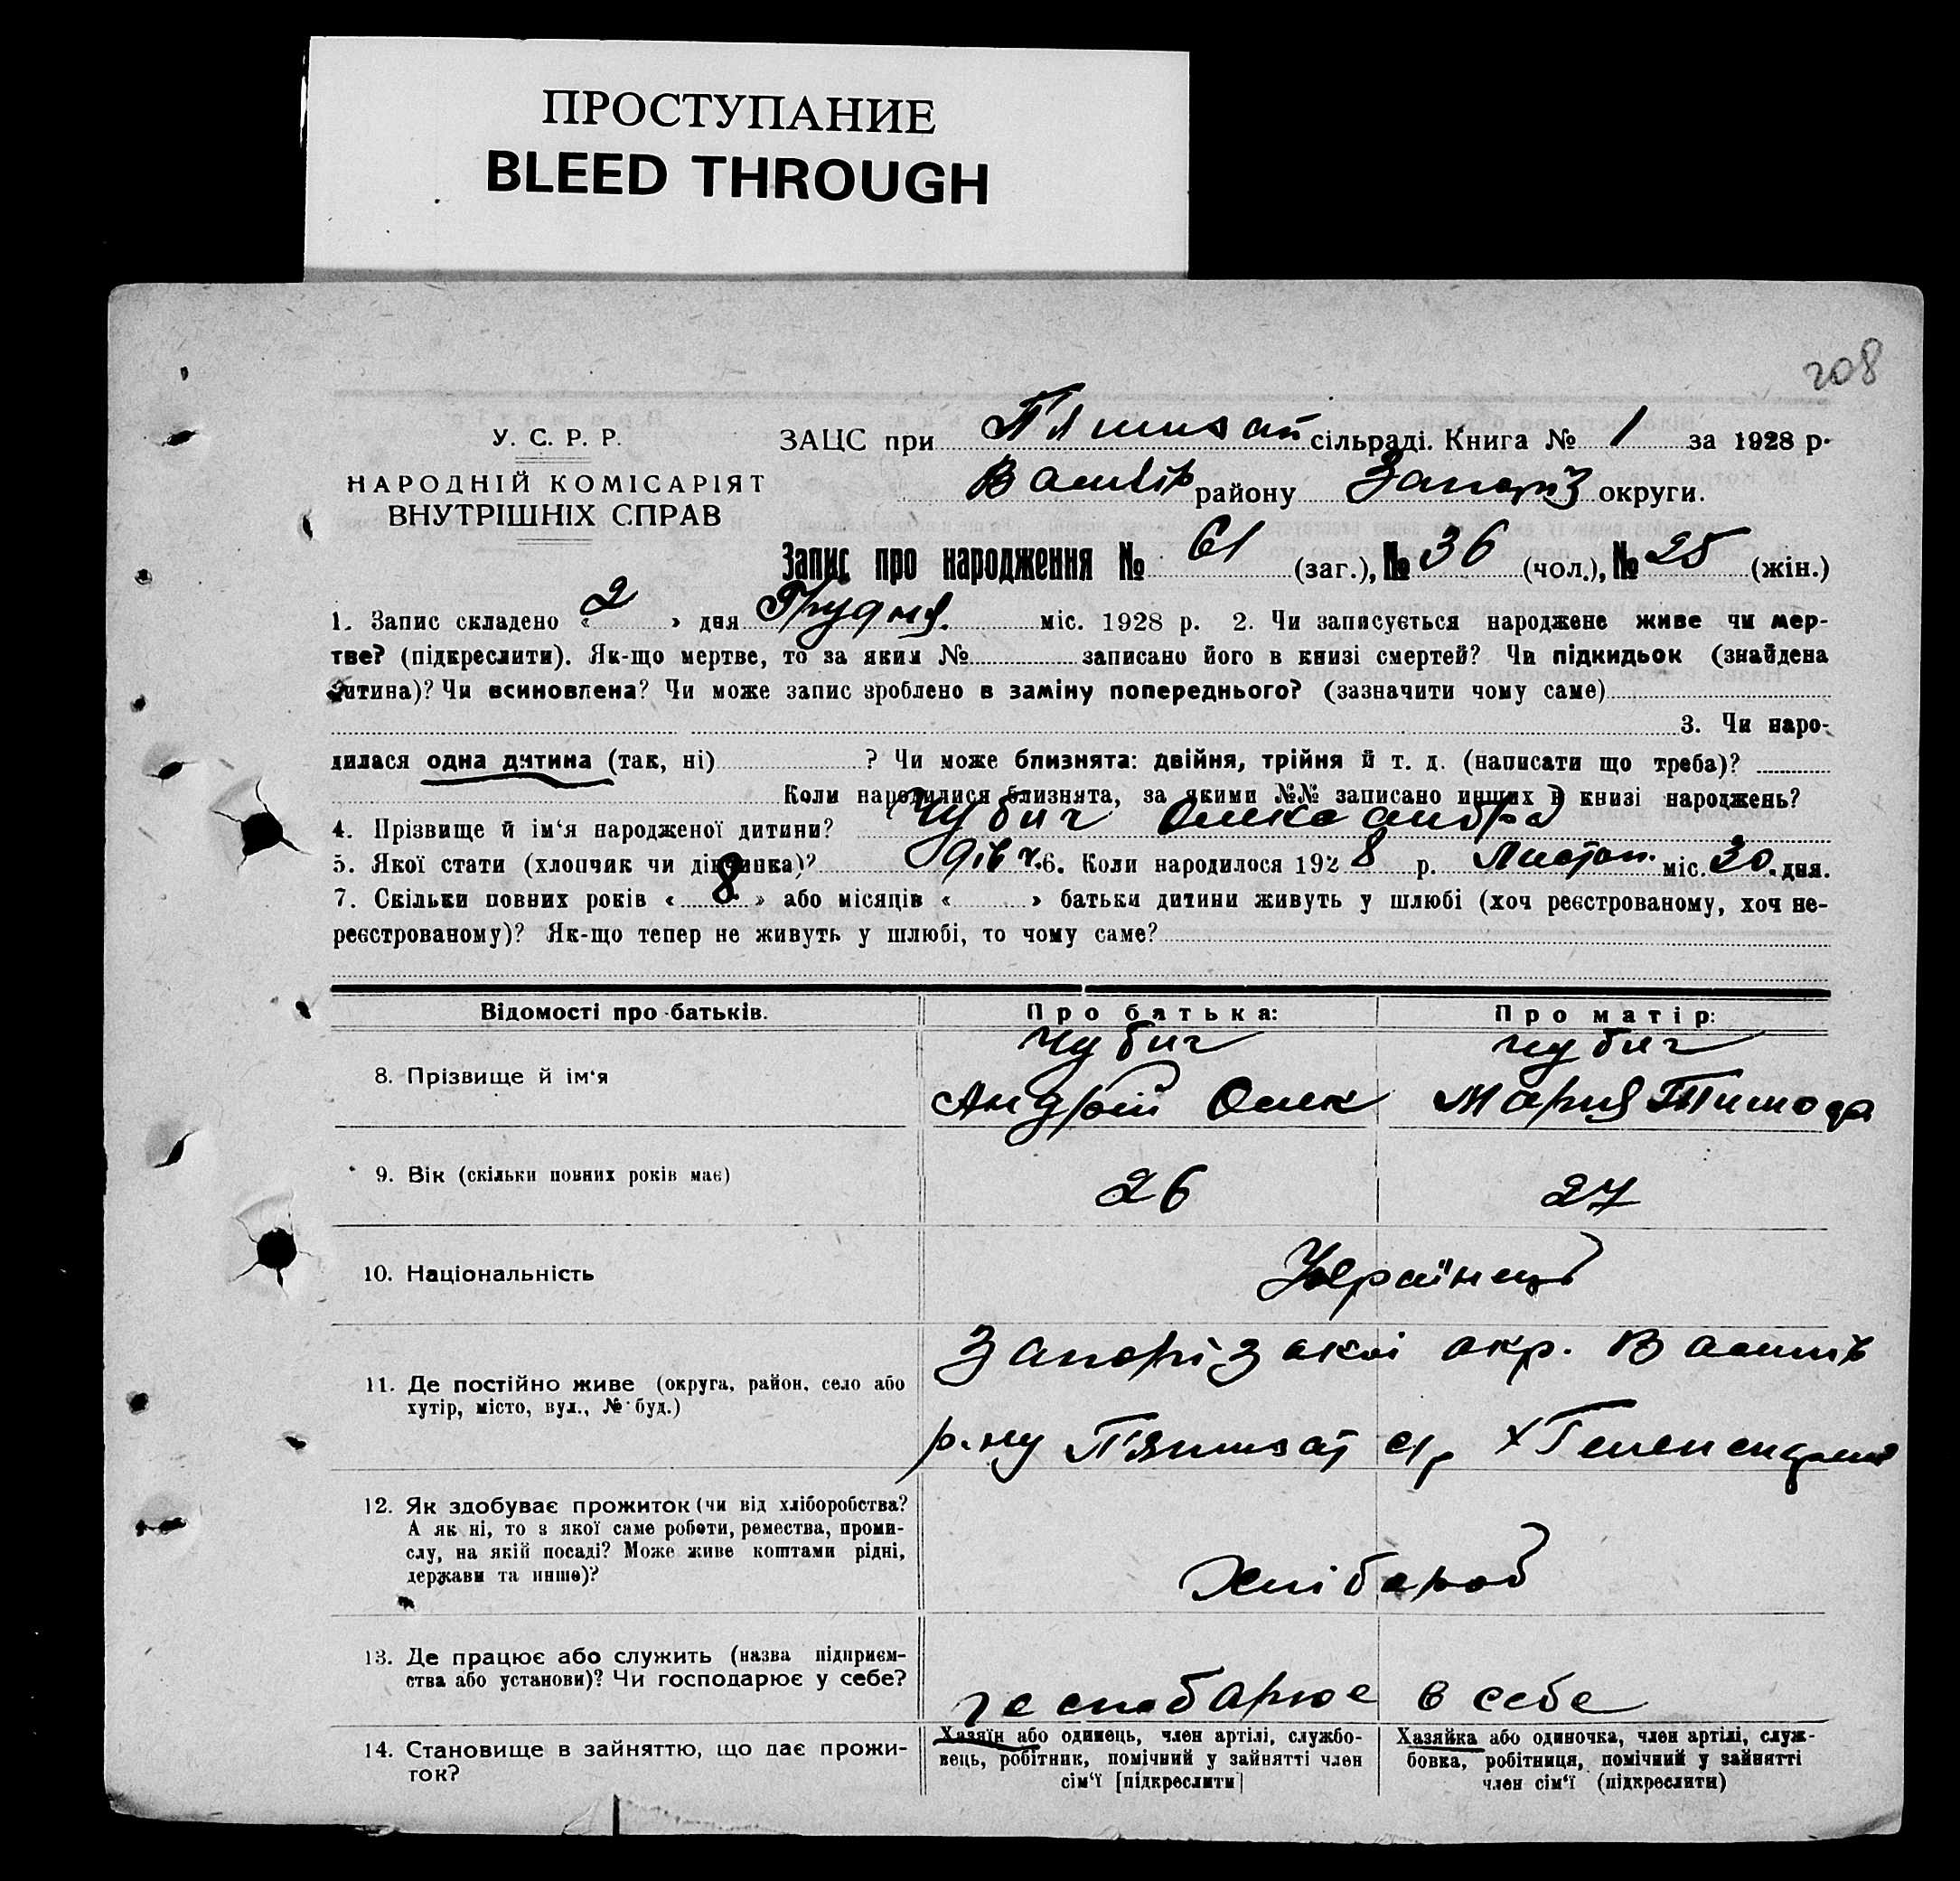 ПРОСТУПАНИЕ
BLEED THROUGH
208
У. С. Р. Р.
НАРОДНІЙ КОМІСАРІЯТ
ВНУТРІШНІХ СПРАВ
ЗАЦС при П'ятизат сільраді. Книга № 1 за 1928 р.
Василів району Запоріз округи.
Запис про народження № 61 (заг.), № 36 (чол.), № 25 (жін.)
1. Запис складено « 2 » дня Грудня міс. 1928 р. 2. Чи записується народжене живе чи мер-
тве? (підкреслити). Як-що мертве, то за яким № записано його в книзі смертей? Чи підкидьок (знайдена
дитина)? Чи всиновлена? Чи може запис зроблено в заміну попереднього? (зазначити чому саме)
3. Чи наро-
дилася одна дитина (так, ні) ? Чи може близнята: двійня, трійня й т. д. (написати що треба)?
Коли народилися близнята, за якими №№ записано инших в книзі народжень?
4. Прізвище й ім'я народженої дитини? Чубич Олександра
5. Якої стати (хлопчик чи дівчинка)? дівч. 6. Коли народилося 1928 р. Листоп. міс. 30 дня.
7. Скільки повних років « 8 » або місяців « » батьки дитини живуть у шлюбі (хоч реєстрованому, хоч не-
реєстрованому)? Як-що тепер не живуть у шлюбі, то чому саме?
Відомості про батьків. Про батька: Про матір:
8. Прізвище й ім'я
Чубич
Андрій Олек
Чубич
Мария Тимофе
9. Вік (скільки повних років має) 26 27
10. Національність Українець
11. Де постійно живе (округа, район, село або
хутір, місто, вул., № буд.)
Запорізької окр. Василів
р-ну П'ятизат с/р х
12. Як здобуває прожиток (чи від хліборобства?
А як ні, то з якої саме роботи, ремества, проми-
слу, на якій посаді? Може живе коштами рідні,
держави та инше)?
Хлібароб
13. Де працює або служить (назва підприєм-
ства або установи)? Чи господарює у себе?
господарює в себе
14. Становище в зайняттю, що дає прожи-
ток?
Хазяїн або одинець, член артілі, службо-
вець, робітник, помічний у зайнятті член
сім'ї [підкреслити]
Хазяйка або одиночка, член артілі, служ-
бовка, робітниця, помічний у зайнятті
член сім'ї (підкреслити)